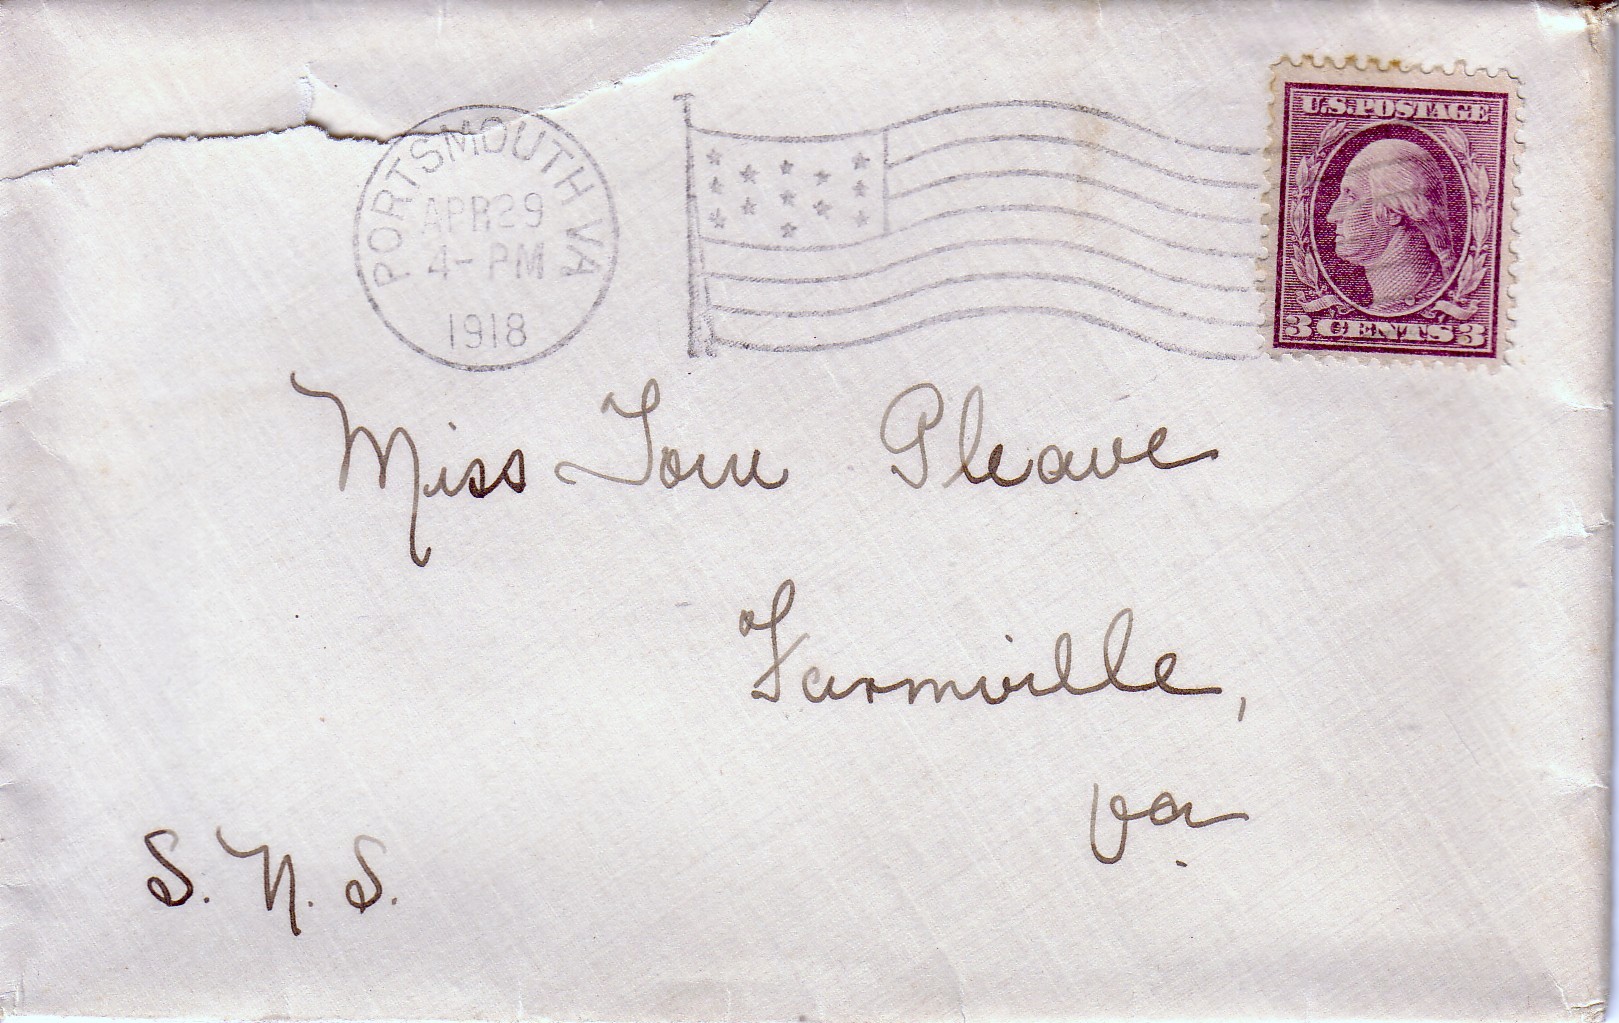 PORTSMOUTH VA
APR 29
4-PM
1918
U.S. POSTAGE
3 CENTS 3
Miss Tom Pleave
Farmville,
Va.
S. N. S.